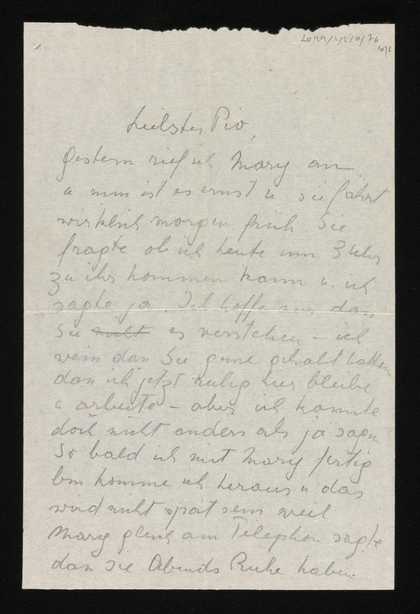 Liebster Pio,
Gestern rief ich Mary an
u nun ist es ernst u sie fährt
wirklich morgen früh Sie
fragte ob ich heute um 3 Uhr
zu ihr kommen kann u. ich
sagte ja. Ich hoffe nur dass
Sie es verstehen – ich
weiss dass Sie gerne gehabt hätten
dass ich jetzt ruhig hier bleibe
u arbeite – aber ich konnte
doch nicht anders als ja sagen
So bald ich mit Mary fertig
bin komme ich heraus u das
wird nicht spät sein weil
Mary gleich am Telephon sagte
dass sie Abends Ruhe haben